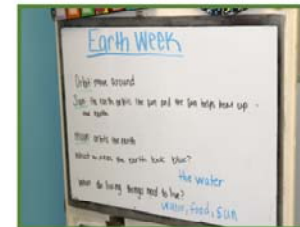 Earth Week
Orbit move around
Sun the earth orbits the sun and the sun helps heat up
our earth
moon orbits the earth
What makes the earth look blue?
the water
What do living things need to live?
water, food, sun